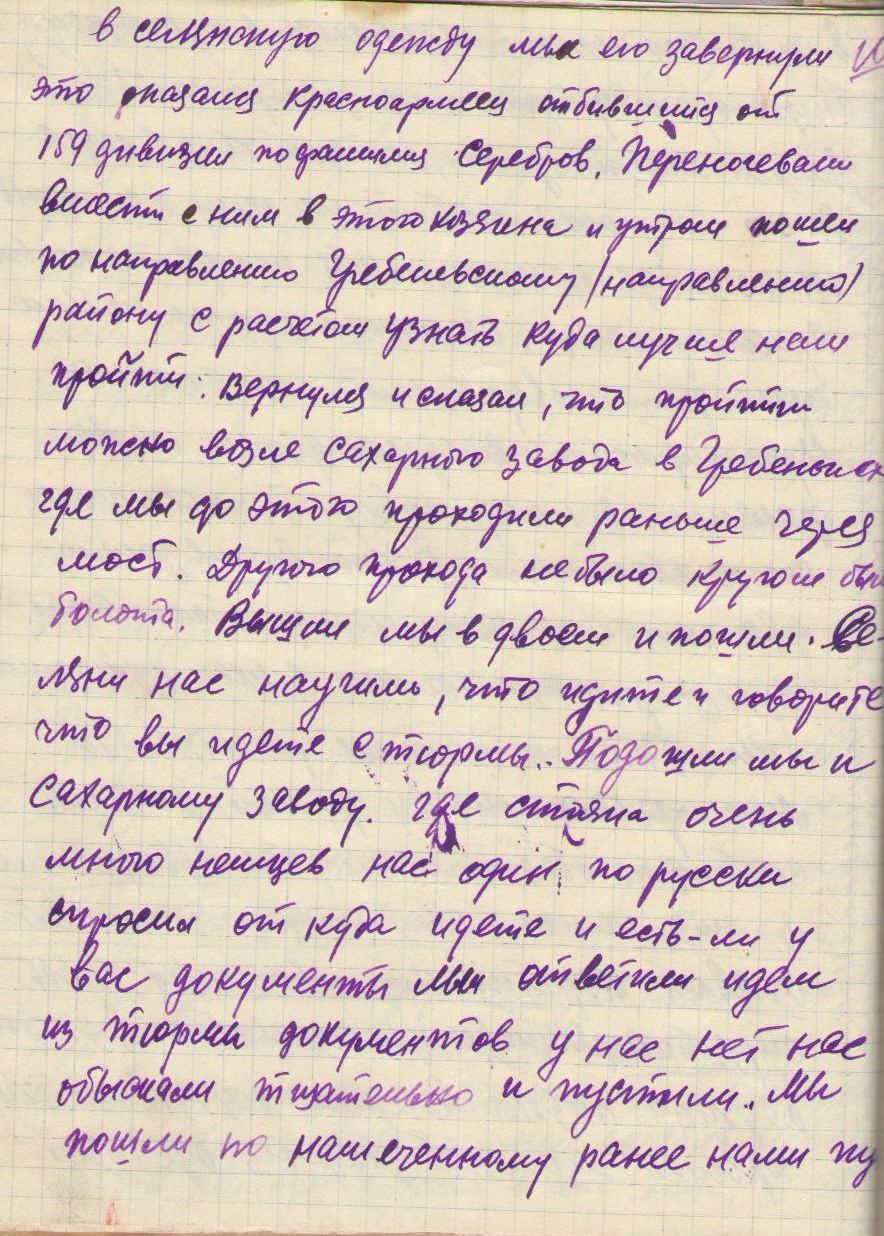 в селянскую одежду мы его завернули
это оказался красноармеец отбившийся от
159 дивизии по фамилия Серебров. Переночевали
вместе с ним в этого хозяина и утром пошли
по направлению Гребеньвскому (направлению)
району с расчетом узнать куда лучше нам
пройти. Вернулся и сказал, что пройти
можно возле сахарного завода в Гребеньках
где мы до этого проходили раньше через
мост. Другого прохода не было кругом был
болота. Вышли мы в двоем и пошли. Се-
ляни нас научили, что идите и говорите
что вы идете с тюрмы.. Подошли мы к
сахарному заводу. где стояла очень
много немцев нас один по русски
спросил от куда идете и есть-ли у
вас документы мы ответили идем
из тюрмы документов у нас нет нас
обыскали тщательно и пустили.. Мы
пошли по намеченному ранее нами пу